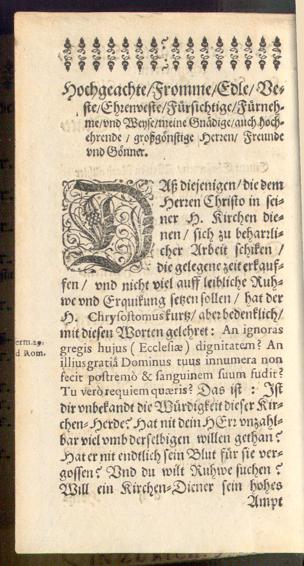 Hochgeachte/Fromme/Edle/Ve-
ste/Ehrenveste/Fürsichtige/Fürneh-
me/vnd Weyse/meine Gnädige/auch Hoch-
ehrende / großgönstige Herren/ Freunde
vnd Gönner.
DAß diejenigen/die dem
Herren Christo in sei-
ner H. Kirchen die-
nen / sich zu beharzli-
cher Arbeit schiken /
die gelegene zeit erkauf-
fen / vnd nicht viel auff leibliche Ruh-
we vnd Erquikung setzen sollen / hat der
H. Chrysostomus kurtz/ aber bedenklich/
mit diesen Worten gelehret: An ignoras
gregis hujus (Ecclesiæ) dignitatem? An
illius gratiâ Dominus tuus innumera non
fecit postremò & sanguinem suum fudit?
Tu verò requiem quæris? Das ist : Ist
dir vnbekandt die Würdigkeit dieser Kir-
chen-Herde? Hat nit dein HErr vnzahl-
bar viel vmb derselbigen willen gethan?
Hat er nit endtlich sein Blut für sie ver-
gossen? Vnd du wilt Ruhwe suchen?
Will ein Kirchen-Diener sein hohes
Ampt
erm. 29.
d Rom.